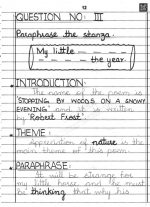 12
QUESTION NO: III
Paraphrase the stanza.
My little — — — —
— — — — the year.
INTRODUCTION:
The name of the poem is
"STOPPING BY WOODS ON A SNOWY
EVENING" and it is written
by 'Robert Frost'.
THEME:
Appreciation of nature is the
main theme of this poem.
PARAPHRASE:
It will be strange for
my little horse and he must
be thinking that why his